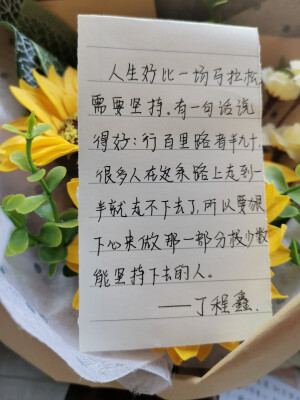 人生好比一场马拉松
需要坚持。有一句话说
得好：行百里路者半九十，
很多人在这条路上走到一
半就走不下去了，所以要狠
下心来做那一部分极少数
能坚持下去的人。
——丁程鑫.